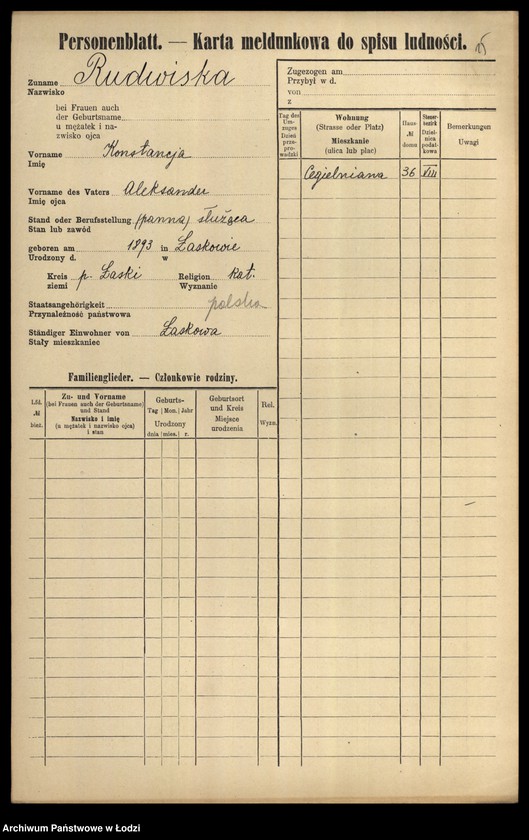 Personenblatt. — Karta meldunkowa do spisu ludności.
Zuname Rudwiska
Nazwisko
bei Frauen auch
der Geburtsname
u mężatek i na-
zwisko ojca
Vorname Konstancja
Imię
Vorname des Vaters Aleksander
Imię ojca
Stand oder Berufsstellung (panna) służąca
Stan lub zawód
geboren am 1893 in Łaskowie
Urodzony d. w
Kreis p. Łaski Religion kat.
ziemi Wyznanie
Staatsangehörigkeit polska
Przynależność państwowa
Ständiger Einwohner von Łaskowa
Stały mieszkaniec
Familienglieder. — Członkowie rodziny.
Lfd. № bież.
Zu- und Vorname
(bei Frauen auch der Geburtsname)
und Stand
Nazwisko i imię
(u mężatek i nazwisko ojca)
i stan
Geburts-
Tag Mon. Jahr
Urodzony
dnia mies. r.
Geburtsort
und Kreis
Miejsce
urodzenia
Rel.
Wyzn.
Zugezogen am
Przybył w d.
von
z
Tag des
Um-
zuges
Dzień
prze-
pro-
wadzki
Wohnung
(Strasse oder Platz)
Mieszkanie
(ulica lub plac)
Haus-
№
domu
Steuer-
bezirk
Dziel-
nica
podat-
kowa
Bemerkungen
Uwagi
Cegielniana 36 VIII
Archiwum Państwowe w Łodzi